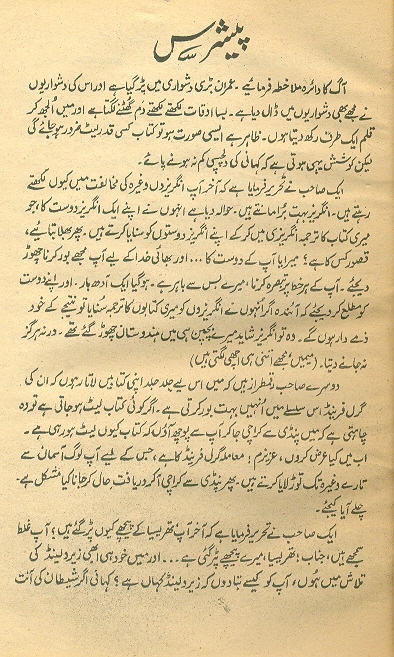 پیشرس
آگ کا دائرہ ملاحظہ فرمائیے۔ عمران بڑی دشواری میں پڑ گیا ہے اور اس کی دشواریوں
نے مجھے بھی دشواریوں میں ڈال دیا ہے۔ بسا اوقات لکھتے لکھتے دم گھٹنے لگتا ہے اور میں الجھ کر
قلم ایک طرف رکھ دیتا ہوں۔ ظاہر ہے ایسی صورت ہو تو کتاب کسی قدر لیٹ ضرور ہو جائے گی
لیکن کوشش یہی ہوتی ہے کہ کہانی کی دلچسپی کم نہ ہونے پائے۔
ایک صاحب نے تحریر فرمایا ہے کہ آخر آپ انگریزوں وغیرہ کی مخالفت میں کیوں لکھتے
رہتے ہیں۔ انگریز بہت برا مانتے ہیں۔ حوالہ دیا ہے انہوں نے اپنے ایک انگریز دوست کا، جو
میری کتاب کا ترجمہ انگریزی میں کر کے اپنے انگریز دوستوں کو سنایا کرتے ہیں۔ پھر بھلا بتائیے،
قصور کس کا ہے؟ میرا یا آپ کے دوست کا... اور بھائی خدا کے لیے آپ مجھے بور کرنا چھوڑ
دیجئے۔ آپ کے ہر خط پر تبصرہ کرنا، میرے بس سے باہر ہے۔ ہو گیا ایک آدھ بار۔ اور اپنے دوست
کو مطلع کر دیجئے کہ آئندہ اگر انہوں نے انگریزوں کو میری کتابوں کا ترجمہ سنایا تو نتیجے کے خود
ذمے دار ہوں گے۔ وہ تو انگریز شاید میرے بچپن ہی میں ہندوستان چھوڑ گئے تھے۔ ورنہ ہرگز
نہ جانے دیتا۔ (میمیں مجھے اتنی ہی اچھی لگتی ہیں)
دوسرے صاحب رقمطراز ہیں کہ میں اس لیے جلد جلد اپنی کتابیں لاتا رہوں کہ ان کی
گرل فرینڈ اس سلسلے میں انہیں بہت بور کرتی ہے۔ اگر کوئی کتاب لیٹ ہو جاتی ہے تو وہ
چاہتی ہے کہ میں پنڈی سے کراچی جا کر آپ سے پوچھ آؤں کہ کتاب کیوں لیٹ ہو رہی ہے۔
اب میں کیا عرض کروں، عزیزم! معاملہ گرل فرینڈ کا ہے، جس کے لیے آپ لوگ آسمان سے
تارے وغیرہ تک توڑ لایا کرتے ہیں۔ پھر پنڈی سے کراچی آ کر دریافت حال کر جانا کیا مشکل ہے۔
چلے آیا کیجئے۔
ایک صاحب نے تحریر فرمایا ہے کہ آخر آپ تھریسیا کے پیچھے کیوں پڑ گئے ہیں؟ آپ غلط
سمجھے ہیں، جناب! تھریسیا، میرے پیچھے پڑ گئی ہے... اور میں خود ہی ابھی زیرو لینڈ کی
تلاش میں ہوں، آپ کو کیسے بتا دوں کہ زیرو لینڈ کہاں ہے؟ کہانی اگر شیطان کی آنت